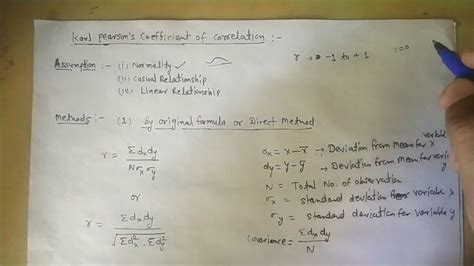 Karl Pearson's Coefficient of Correlation :-
r → -1 to +1
Assumption :- (i) Normality ✓
(ii) Casual Relationship
(iii) Linear Relationship
Methods :- (1) By original formula or Direct Method
r = Σdxdy / Nσxσy
or
r = Σdxdy / √Σdx² . Σdy²
dx = x - x̄ → Deviation from mean for variable X
dy = y - ȳ → Deviation from mean for vari y
N = Total No. of observation
σx = standard deviation for variable X
σy = standard deviation for variable y
Covariance = Σdxdy / N